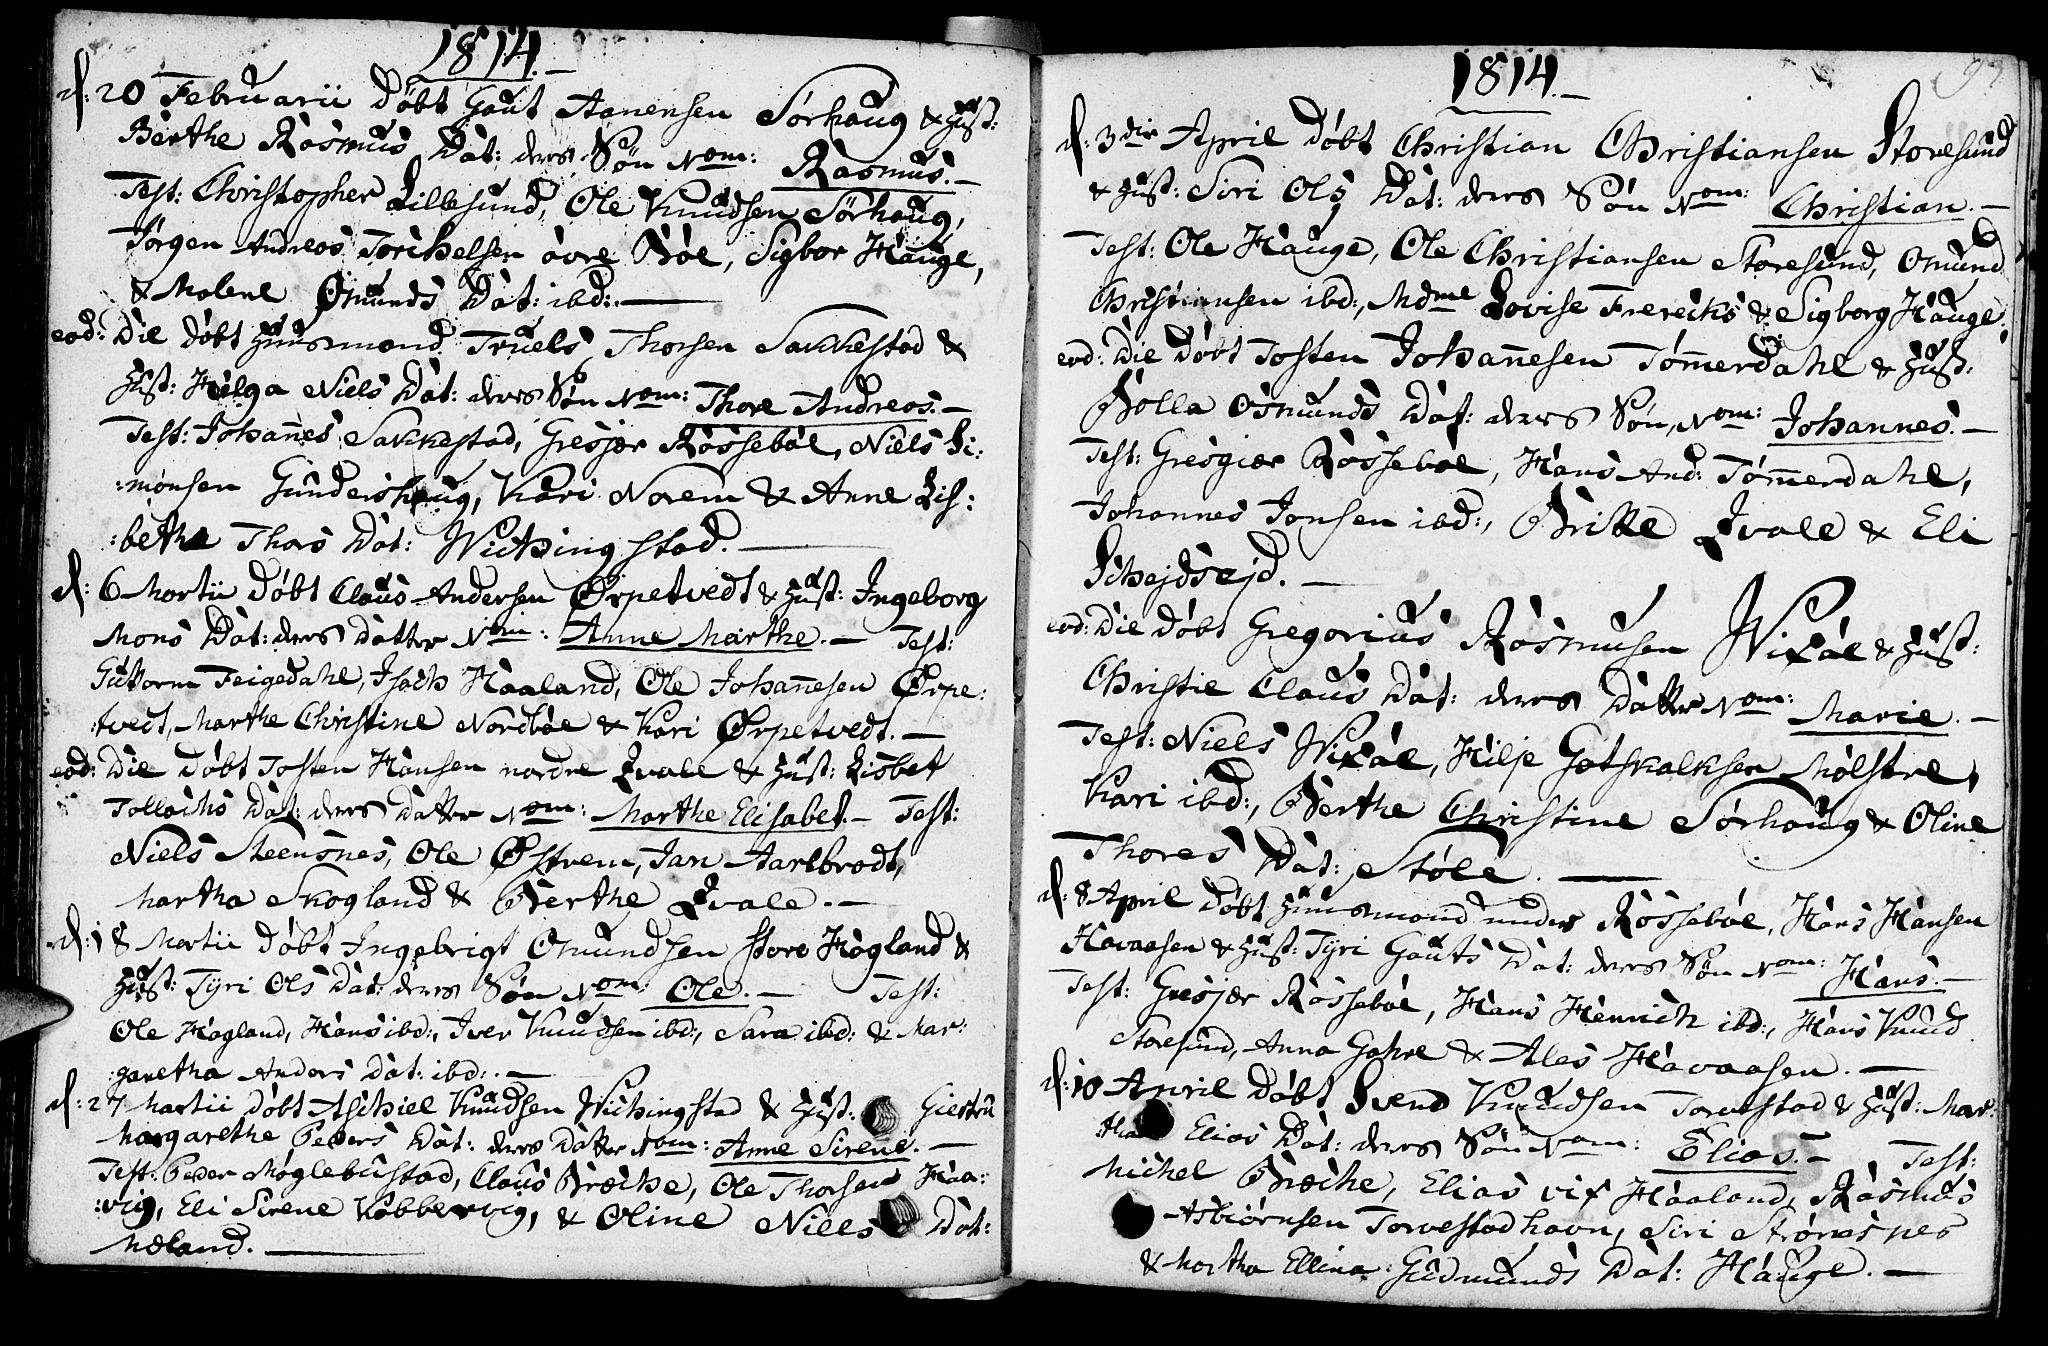 1814.
d: 20 Februarii døbt Gaut Aanensen Sørhaug & Hust:
Berthe Rasmus Dat: deres Søn Nom: Rasmus.
Test: Christopher Lillesund, Ole Knudsen Sørhaug,
Jørgen Andreas Torchelsen øvre Bøe, Sigbor Hauge,
& Malene Omunds Dat: ibd:
eod: Die døbt Huusmand Truels Thorsen Sakkestad &
Hust: Helga Niels Dat: deres Søn Nom: Thore Andreas.
Test: Johannes Sakkestad, Gresjær Røssebøe, Niels Si:
:monsen Gundershaug, Kari Norem & Anne Lis:
:bethe Thors Dat: Wichingstad.
d: 6 Martii døbt Claus Andersen Ørpetvedt & Hust: Ingeborg
Mons Dat: deres Datter Nom: Anne Marthe. Test:
Guttorm Teigedahl, Isach Haaland, Ole Johannesen Ørpe:
:tvedt, Marthe Christine Nordbøe & Kari Ørpetvedt.
eod: Die døbt Tosten Hansen nordre Qvale & Hust: Lisbet
Tollachs Dat: deres Datter Nom: Marthe Elisabet. Test:
Niels Steensnes, Ole Østrem, Jan Aarebrodt,
Martha Skogland & Berthe Qvale.
d: 18 Martii døbt Ingebrigt Omundsen store Hogland &
Hust: Tyri Ols Dat: deres Søn Nom: Ole. Test:
Ole Hogland, Hans ibd:, Iver Knudsen ibd:, Sara ibd: & Mar:
:garetha Anders Dat: ibd:.
d: 27 Martii døbt Aschiel Knudsen Wichingstad & Hust: Giertru
Margarethe Peders Dat: deres Datter Nom: Anne Sirene.
Test: Peder Møglebustad, Claus Breche, Ole Thorsen Haa:
:vig, Eli Sirene Kobbervig, & Oline Niels Dat:
Mæland.
1814.
d: 3die April døbt Christian Christiansen Storesund
& Hust: Siri Ols Dat: deres Søn Nom: Christian.
Test: Ole Hauge, Ole Christiansen Storesund, Omund
Christiansen ibd:, Mdme Lovise Frerichs & Sigborg Hauge.
eod: Die døbt Tosten Johannesen Tømmerdahl & Hust:
Bolla Osmunds Dat: deres Søn, Nom: Johannes.
Test: Gresgiær Røssebøe, Hans And: Tømmerdahl,
Johannes Jonsen ibd:, Britte Qvale & Eli
Schejdsejd.
eod: Die døbt Gregorius Rasmusen Wixøe & Hust:
Christie Claus Dat: deres Datter Nom: Marie.
Test: Niels Wixøe, Hilje Gotskalksen Mølstre,
Kari ibd:, Berthe Christine Sørhaug & Oline
Thores Dat: Støle.
d: 8 April døbt Huusmand under Røssebøe, Hans Hansen
Havaasen & Hust: Tyri Gauts Dat: deres Søn Nom: Hans.
Test: Gresjær Røssebøe, Hans Henrich ibd:, Hans Knud
Storesund, Anna Gahre & Ales Havaasen.
d: 10 April døbt Svend Knudsen Torvestad & Hust: Mar:
tha Elias Dat: deres Søn Nom: Elias. Test:
Michel Breche, Elias vix Haaland, Rasmus
Asbiørnsen Torvestadhavn, Siri Strønesnes
& Martha Ellina Gudmunds Dat: Hauge.